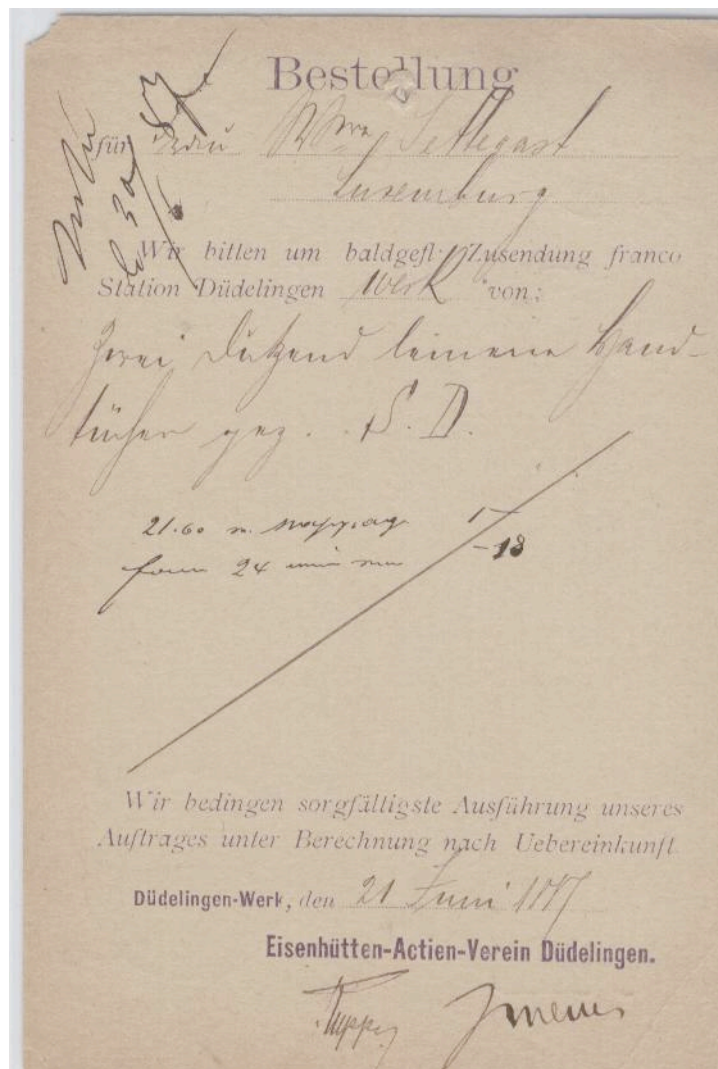 Bestellung
für Frau Wwe Settegast
Luxemburg
Wir bitten um baldgefl. Zusendung franco
Station Düdelingen Werk von:
Zwei Dutzend leinene Hand-
tücher gez. S. D.
21.60 m.
24
Wir bedingen sorgfältigste Ausführung unseres
Auftrages unter Berechnung nach Uebereinkunft.
Düdelingen-Werk, den 21 Juni
Eisenhütten-Actien-Verein Düdelingen.